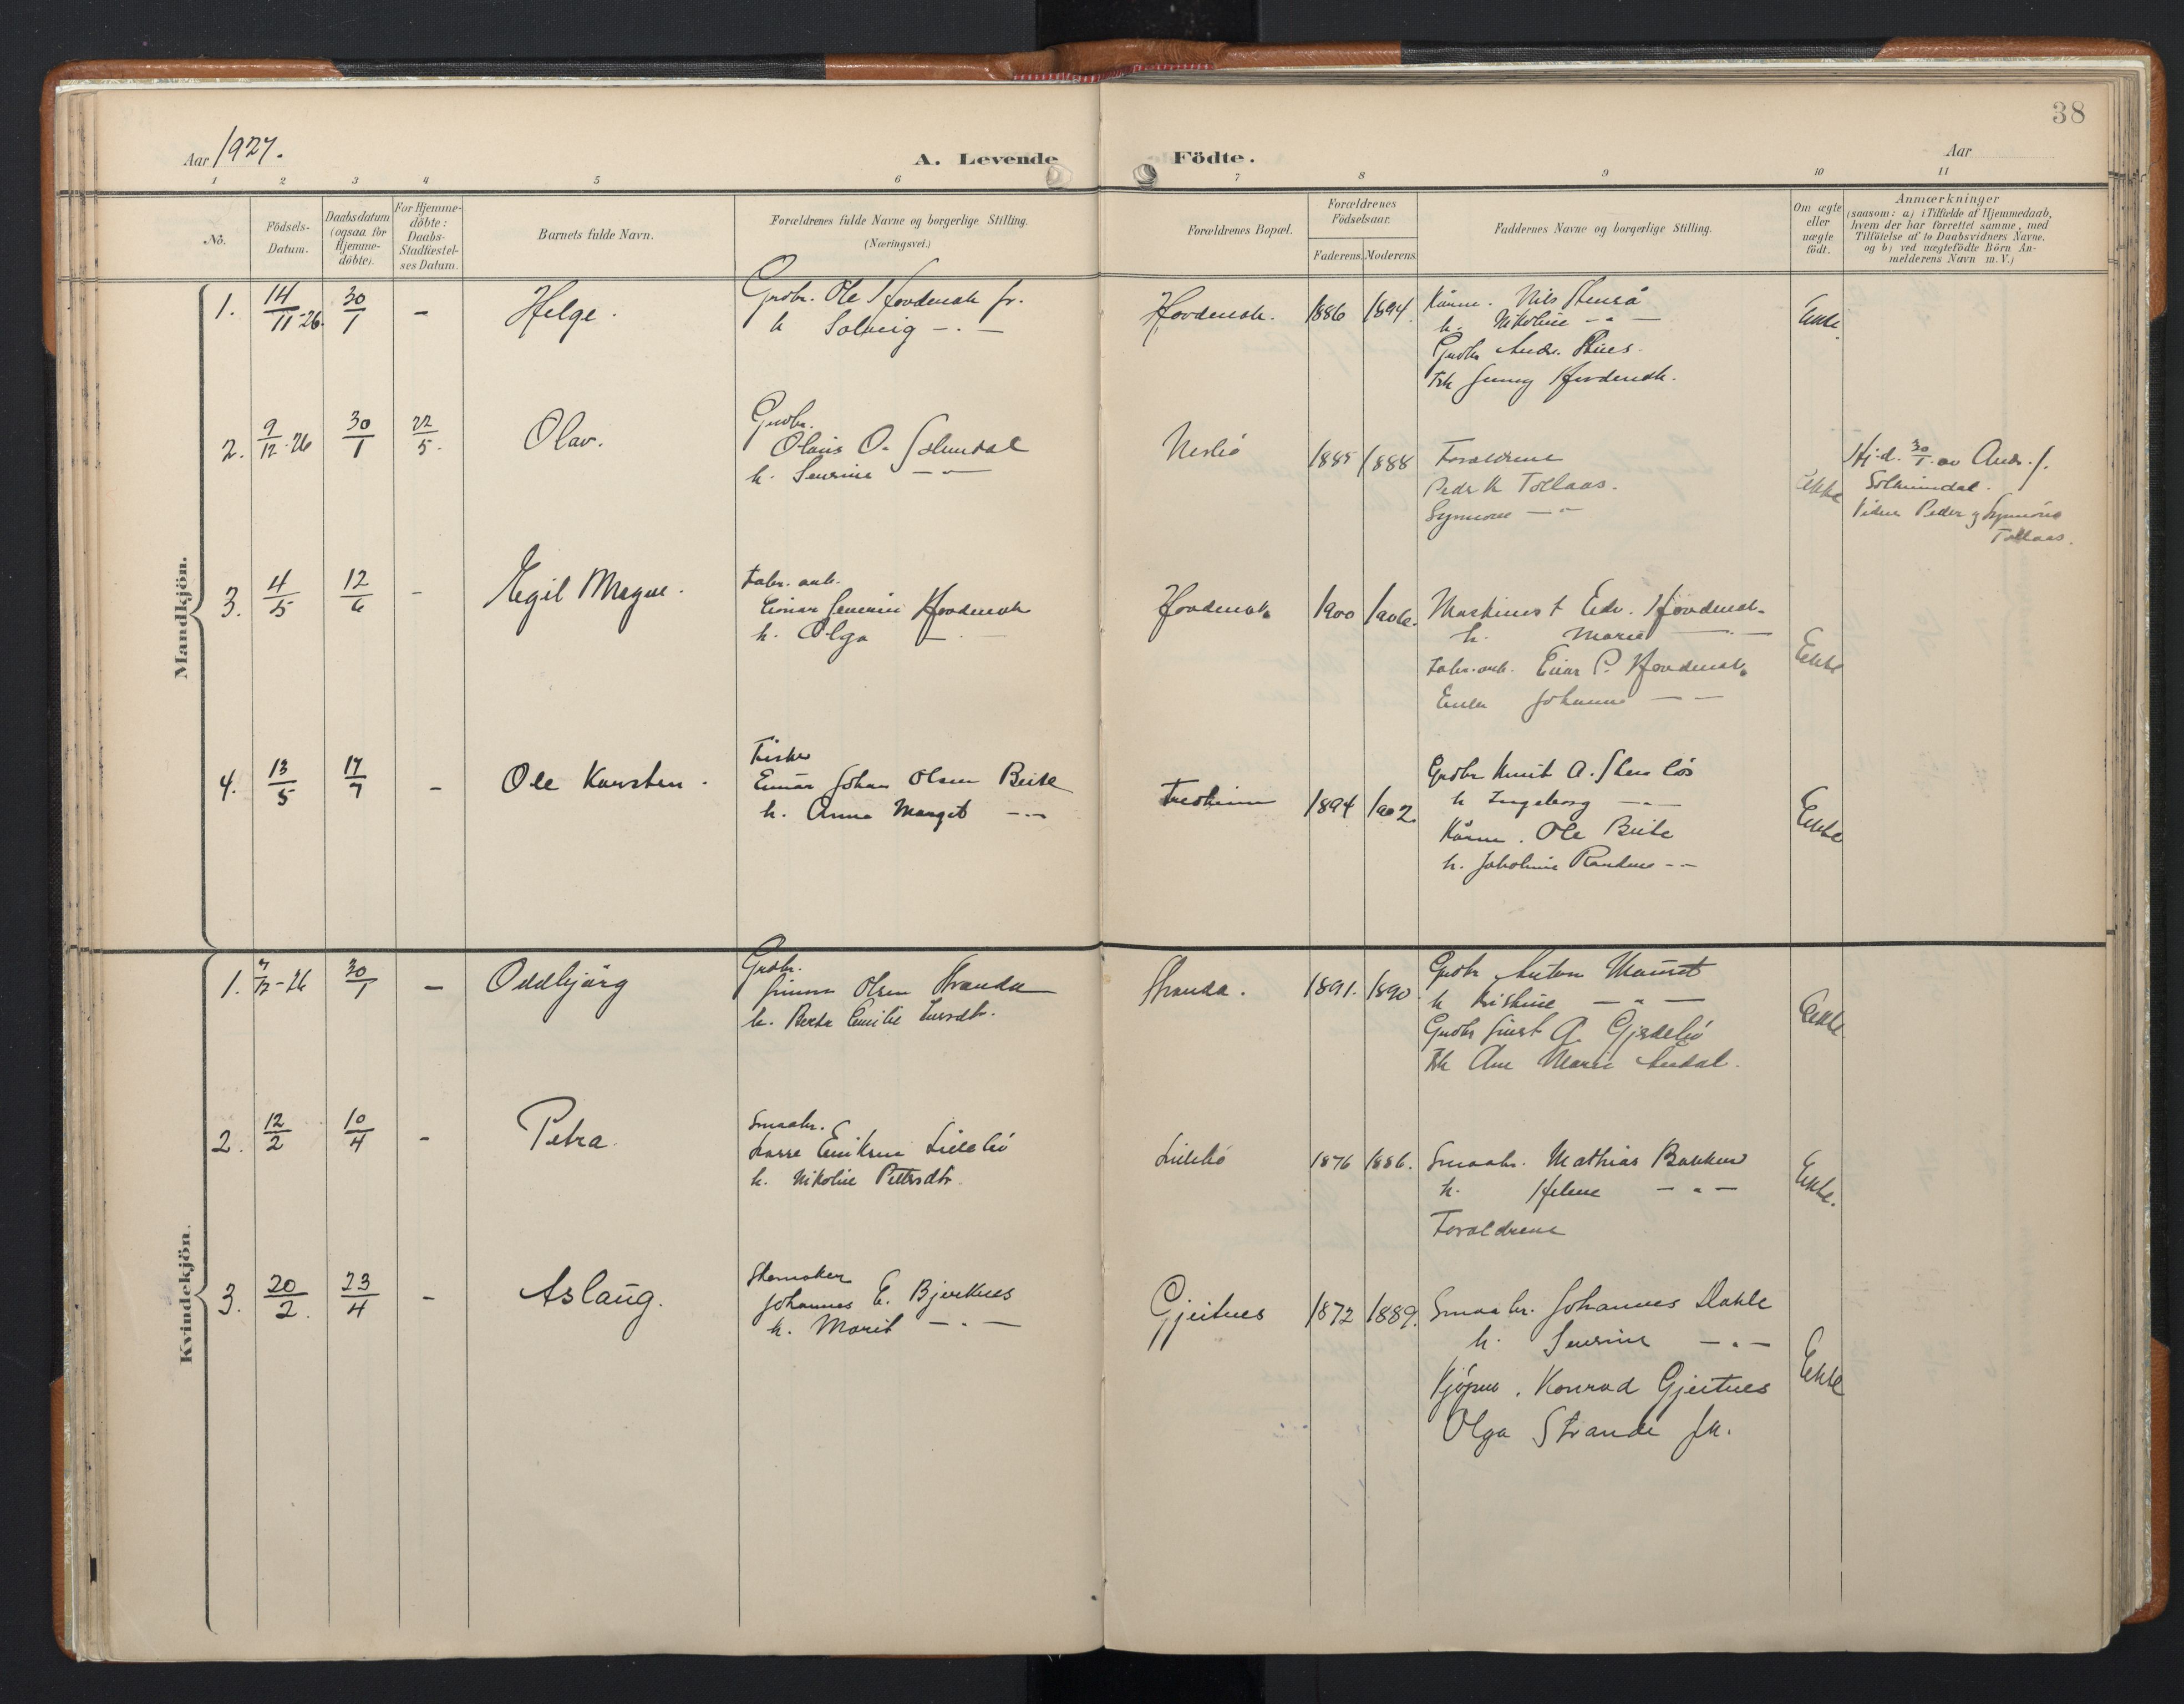 38
Aar 1927.
A. Levende Födte.
Aar
1 2 3 4 5 6 7 8 9 10 11
No.
Födsels-
Datum.
Daabsdatum
(ogsaa for
Hjemme-
döbte).
For Hjemme-
döbte:
Daabs-
Stadfæstel-
ses Datum.
Barnets fulde Navn.
Forældrenes fulde Navne og borgerlige Stilling.
(Næringsvei.)
Forældrenes Bopæl.
Forældrenes
Födselsaar.
Faderens. Moderens.
Faddernes Navne og borgerlige Stilling.
Om ægte
eller
uægte
födt.
Anmærkninger
(saasom: a) i Tilfælde af Hjemmedaab,
hvem der har forrettet samme, med
Tilföielse af to Daabsvidners Navne,
og b) ved uægtefödte Börn An-
melderens Navn m.V.)
Mandkjön.
1. 14/11-26. 30/1 - Helge.
Grdbr. Ole Hovdenak jr.
h Solveig -.-
Hovdenak. 1886 1894.
Kårm. Nils
h. Nikoline -"-
Grdbr Andr.
Frk Hovdenak.
Ekte.
2. 9/12-26 30/1 22/5. Olav.
Grdbr.
Olaus O.
h. Sevrine -"-
Neslö 1885 1888
Foreldrene
Peder K Tollaas.
Synnöve -"-
Ekte
Hj-d. 30/1 av Andr. J.
Solemdal.
Vidner Peder og Synnöve
Tollaas.
3. 4/5 12/6 - Egil Magne.
Fabr. arb.
Einar Severin Hovdenak
h. Olga -.-
Hovdenak 1900 1906.
Maskinist Edv. Hovdenak
h. Marie -.-
Fabr. arb. Einar P. Hovdenak
Enke Johanne - -
Ekte
4. 13/5 17/7 - Ole Karsten.
Fisker
Einar Johan Olsen Beite
h. Anna Margit -"-
1894 1902.
Grdbr Knut A.
h Ingeborg -.-
Kårm. Ole Beite
h. Jakobine --
Ekte
Kvindekjön.
1. 7/12-26 30/1 - Oddbjörg
Grdbr.
Olsen Stranda
h. Berte Emilie
Stranda. 1891. 1890.
Grdbr Anton
h Kristine -"-
Grdbr A.
Frk Ane Marie
Ekte
2. 12/2 10/4 - Petra.
Smaabr.
Lasse Eriksen Lillebö
h. Nikoline Pettersdtr.
Lillebö 1876 1886.
Smaabr. Mathias Bakken
h. Helene -"-
Foreldrene
Ekte.
3. 20/2. 23/4 - Aslaug.
Skomaker
Johannes E. Bjerknes
h. Marit -.-
Gjeitnes 1872 1889.
Smaabr. Johannes Dahle
h. Sevrine -.-
Kjöpm. Konrad Gjeitnes
Olga Strande fr.
Ekte